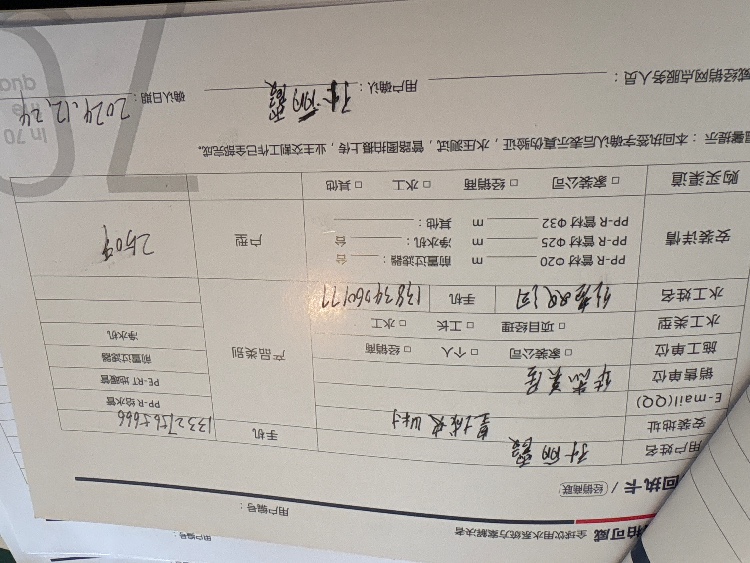 柏可威 全球饮用水系统方案解决者
回执卡 / 经销商联
用户编号：
用户编号：
用户姓名 孙丽霞 手机 13327565666
安装地址
E-mail(QQ)
销售单位 华杰家居
施工单位 □ 家装公司 □ 个人 □ 经销商
水工类型 □ 项目经理 □ 工长 □ 水工
水工姓名 手机 13834960177
产品类别
PP-R 给水管
PE-RT 地暖管
前置过滤器
净水机
安装详情
PP-R 管材 Φ20 m 前置过滤器： 台
PP-R 管材 Φ25 m 净水机： 台
PP-R 管材 Φ32 m 其他：
户型 250平
购买渠道 □ 家装公司 □ 经销商 □ 水工 □ 其他
温馨提示：本回执签字确认后表示真伪验证，水压测试，管路图拍摄上传，业主交割工作已全部完成。
威经销网点服务人员： 用户确认：孙丽霞 确认日期：2024.12.24
70
In 70
the
qua